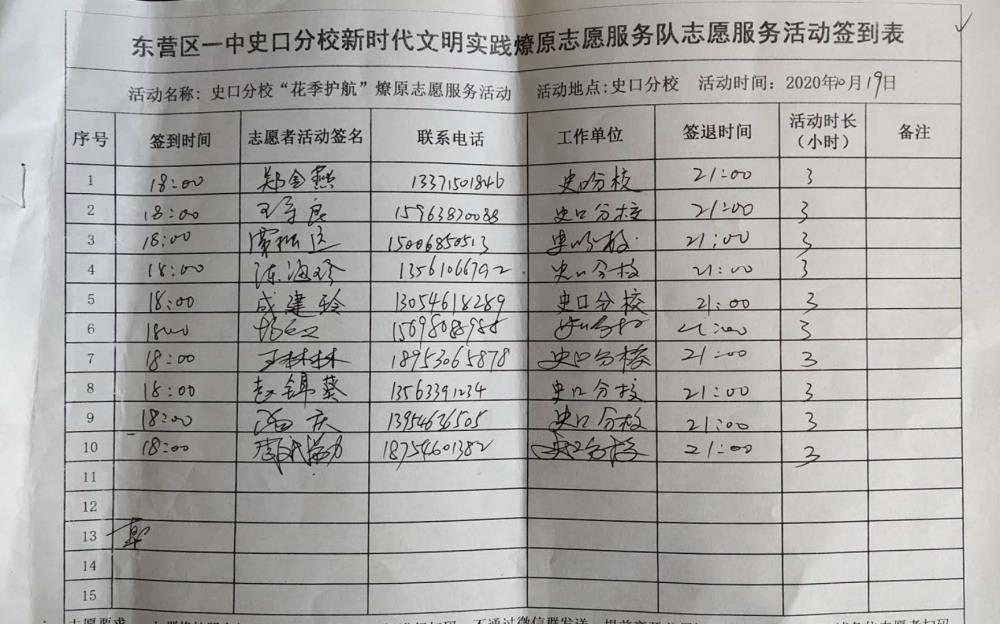 东营区一中史口分校新时代文明实践燎原志愿服务队志愿服务活动签到表
活动名称: 史口分校“花季护航”燎原志愿服务活动 活动地点:史口分校 活动时间: 2020年10月19日
序号 签到时间 志愿者活动签名 联系电话 工作单位 签退时间 活动时长（小时） 备注
1 18:00 郑金燕 13371501846 史口分校 21:00 3
2 18:00 15963870088 史口分校 21:00 3
3 18:00 15006850513 史口分校 21:00 3
4 18:00 陈海珍 13561066792 史口分校 21:00 3
5 18:00 成建玲 13054618289 史口分校 21:00 3
6 18:00 史口分校 21:00 3
7 18:00 王林林 18953065878 史口分校 21:00 3
8 18:00 赵锦葵 13563391234 史口分校 21:00 3
9 18:00 13954636505 史口分校 21:00 3
10 18:00 18754601382 史口分校 21:00 3
11
12
13
14
15